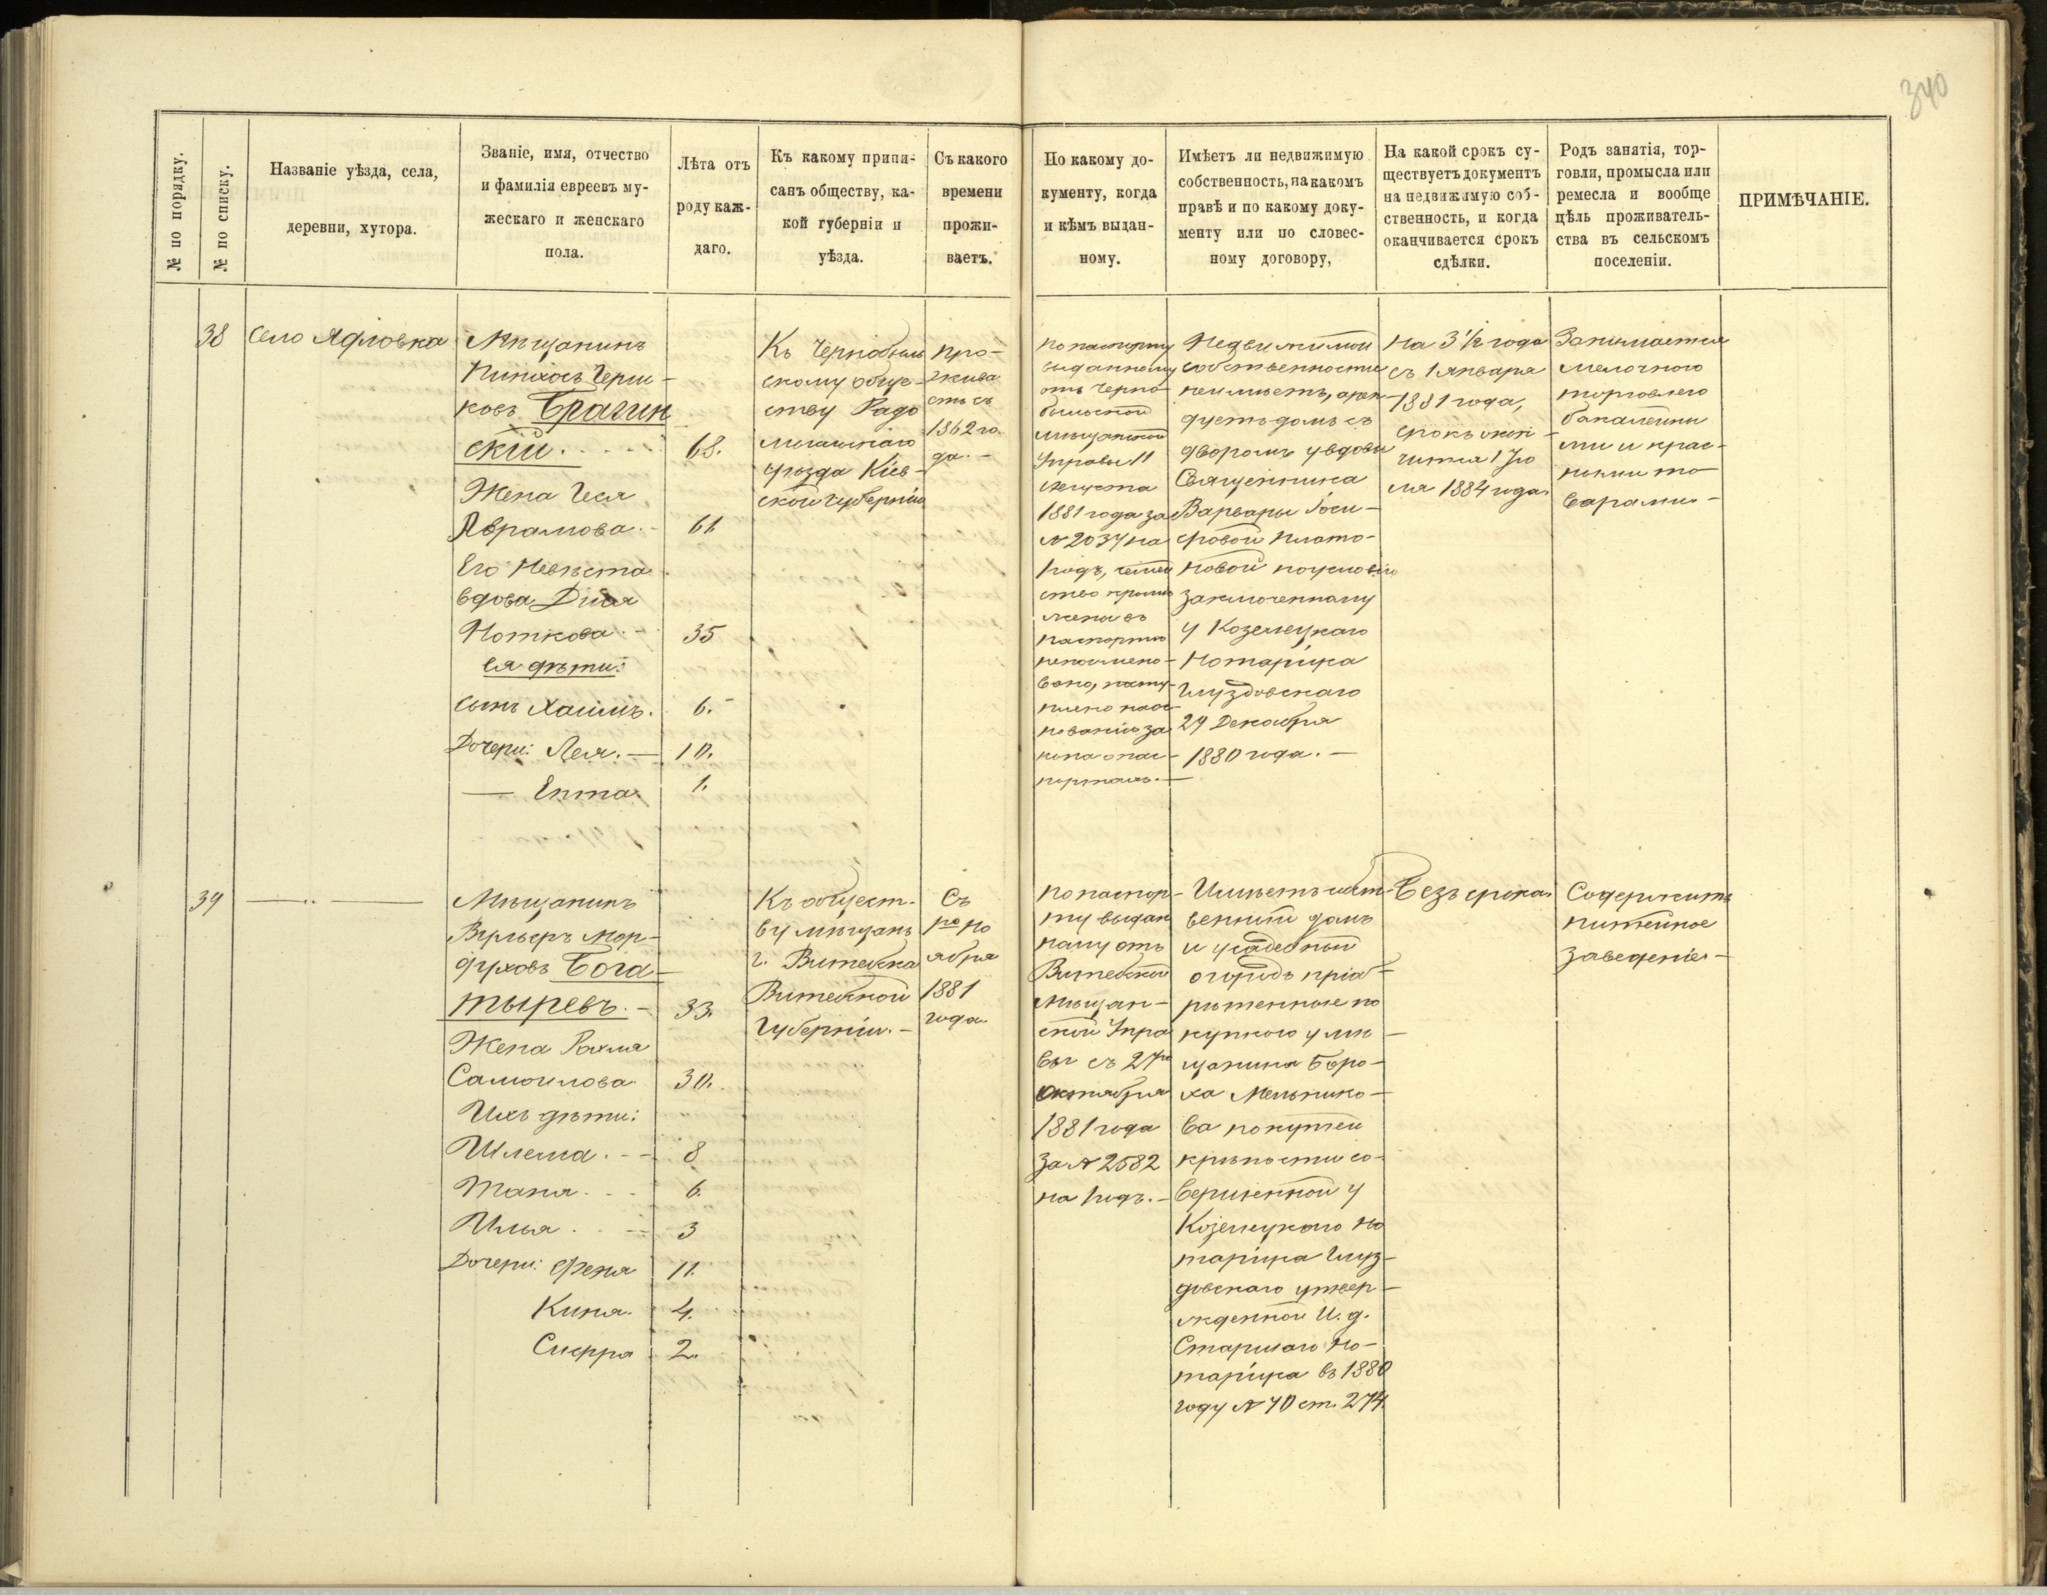 340
№ по порядку.
№ по списку.
Названіе уѣзда, села,
деревни, хутора.
Званіе, имя, отчество
и фамилія евреевъ му-
жескаго и женскаго
пола.
Лѣта отъ
роду каж-
даго.
Къ какому припи-
санъ обществу, ка-
кой губерніи и
уѣзда.
Съ какого
времени
прожи-
ваетъ.
По какому до-
кументу, когда
и кѣмъ выдан-
ному.
Имѣетъ ли недвижимую
собственность, на какомъ
правѣ и по какому доку-
менту или по словес-
ному договору,
На какой срокъ су-
ществуетъ документъ
на недвижимую соб-
ственность, и когда
оканчивается срокъ
сдѣлки.
Родъ занятія, тор-
говли, промысла или
ремесла и вообще
цѣль проживатель-
ства въ сельскомъ
поселеніи.
ПРИМѢЧАНІЕ.
38
село Ядловка
Мѣщанинъ
Пинхосъ Герш-
ковъ Брагин
скій.
68.
Жена Геся
Аврамова.
61
Его Невѣста
вдова Двося
Ноткова.
35
ея дѣти:
сынъ Хаимъ.
6.
Дочери: Лея.
10.
Епта.
1.
Къ Чернобыль
скому обще-
ству Радо
мысльскаго
уѣзда Кіев-
ской губерніи
про-
жива
етъ съ
1862 го-
да.
по паспорту
выданному
отъ Черно-
быльской
мѣщанской
Управы 11
Августа
1881 года за
№ 2037 на
годъ, семей
ство кромѣ
жены въ
паспортѣ
непоимено-
вано,
1880 года.
Недвижимой
собственности
неимѣетъ, арен-
дуетъ домъ съ
дворомъ у вдовы
Священника
Варвары Іоси-
фовой Плато-
новой по условію
заключенному
у Козелецкаго
Нотаріуса
Глуздовскаго
29 Декабря
1880 года.
На 3 ½ года
съ 1 Января
1881 года,
срокъ окон-
чится 1 Ію
ля 1884 года.
Занимается
мелочною
торговлею
бакалейны
ми и крас-
ными то-
варами.
39
Мѣщанинъ
Вульфъ Мор-
духовъ Бога-
тыревъ.
33.
Жена Рахля
Самоилова
30.
Ихъ дѣти:
Шлема.
8
Таня
6.
Илья
3
Дочери: Феня
11.
Киня.
4.
Сиерра
2.
Къ общест-
ву мѣщанъ
г. Витебска
Витебской
Губерніи.
Съ
1го Но
ября
1881
года.
по паспор-
ту выдан
ному отъ
Витебской
мѣщан-
ской Упра
вы съ 27го
октября
1881 года
за № 2582
на годъ.
Имѣетъ собст-
венный домъ
и усадебный
огородъ пріоб-
рѣтенные по
купкою у мѣ-
щанина Боро-
ха Мельнико-
ва по купчей
крѣпости со-
вершенной у
Козелецкаго но
таріуса Глуз-
довскаго утвер-
жденной И. д.
Старшаго но-
таріуса въ 1880
году № 70 ст. 274.
Безъ срока.
Содержитъ
питейное
заведеніе.